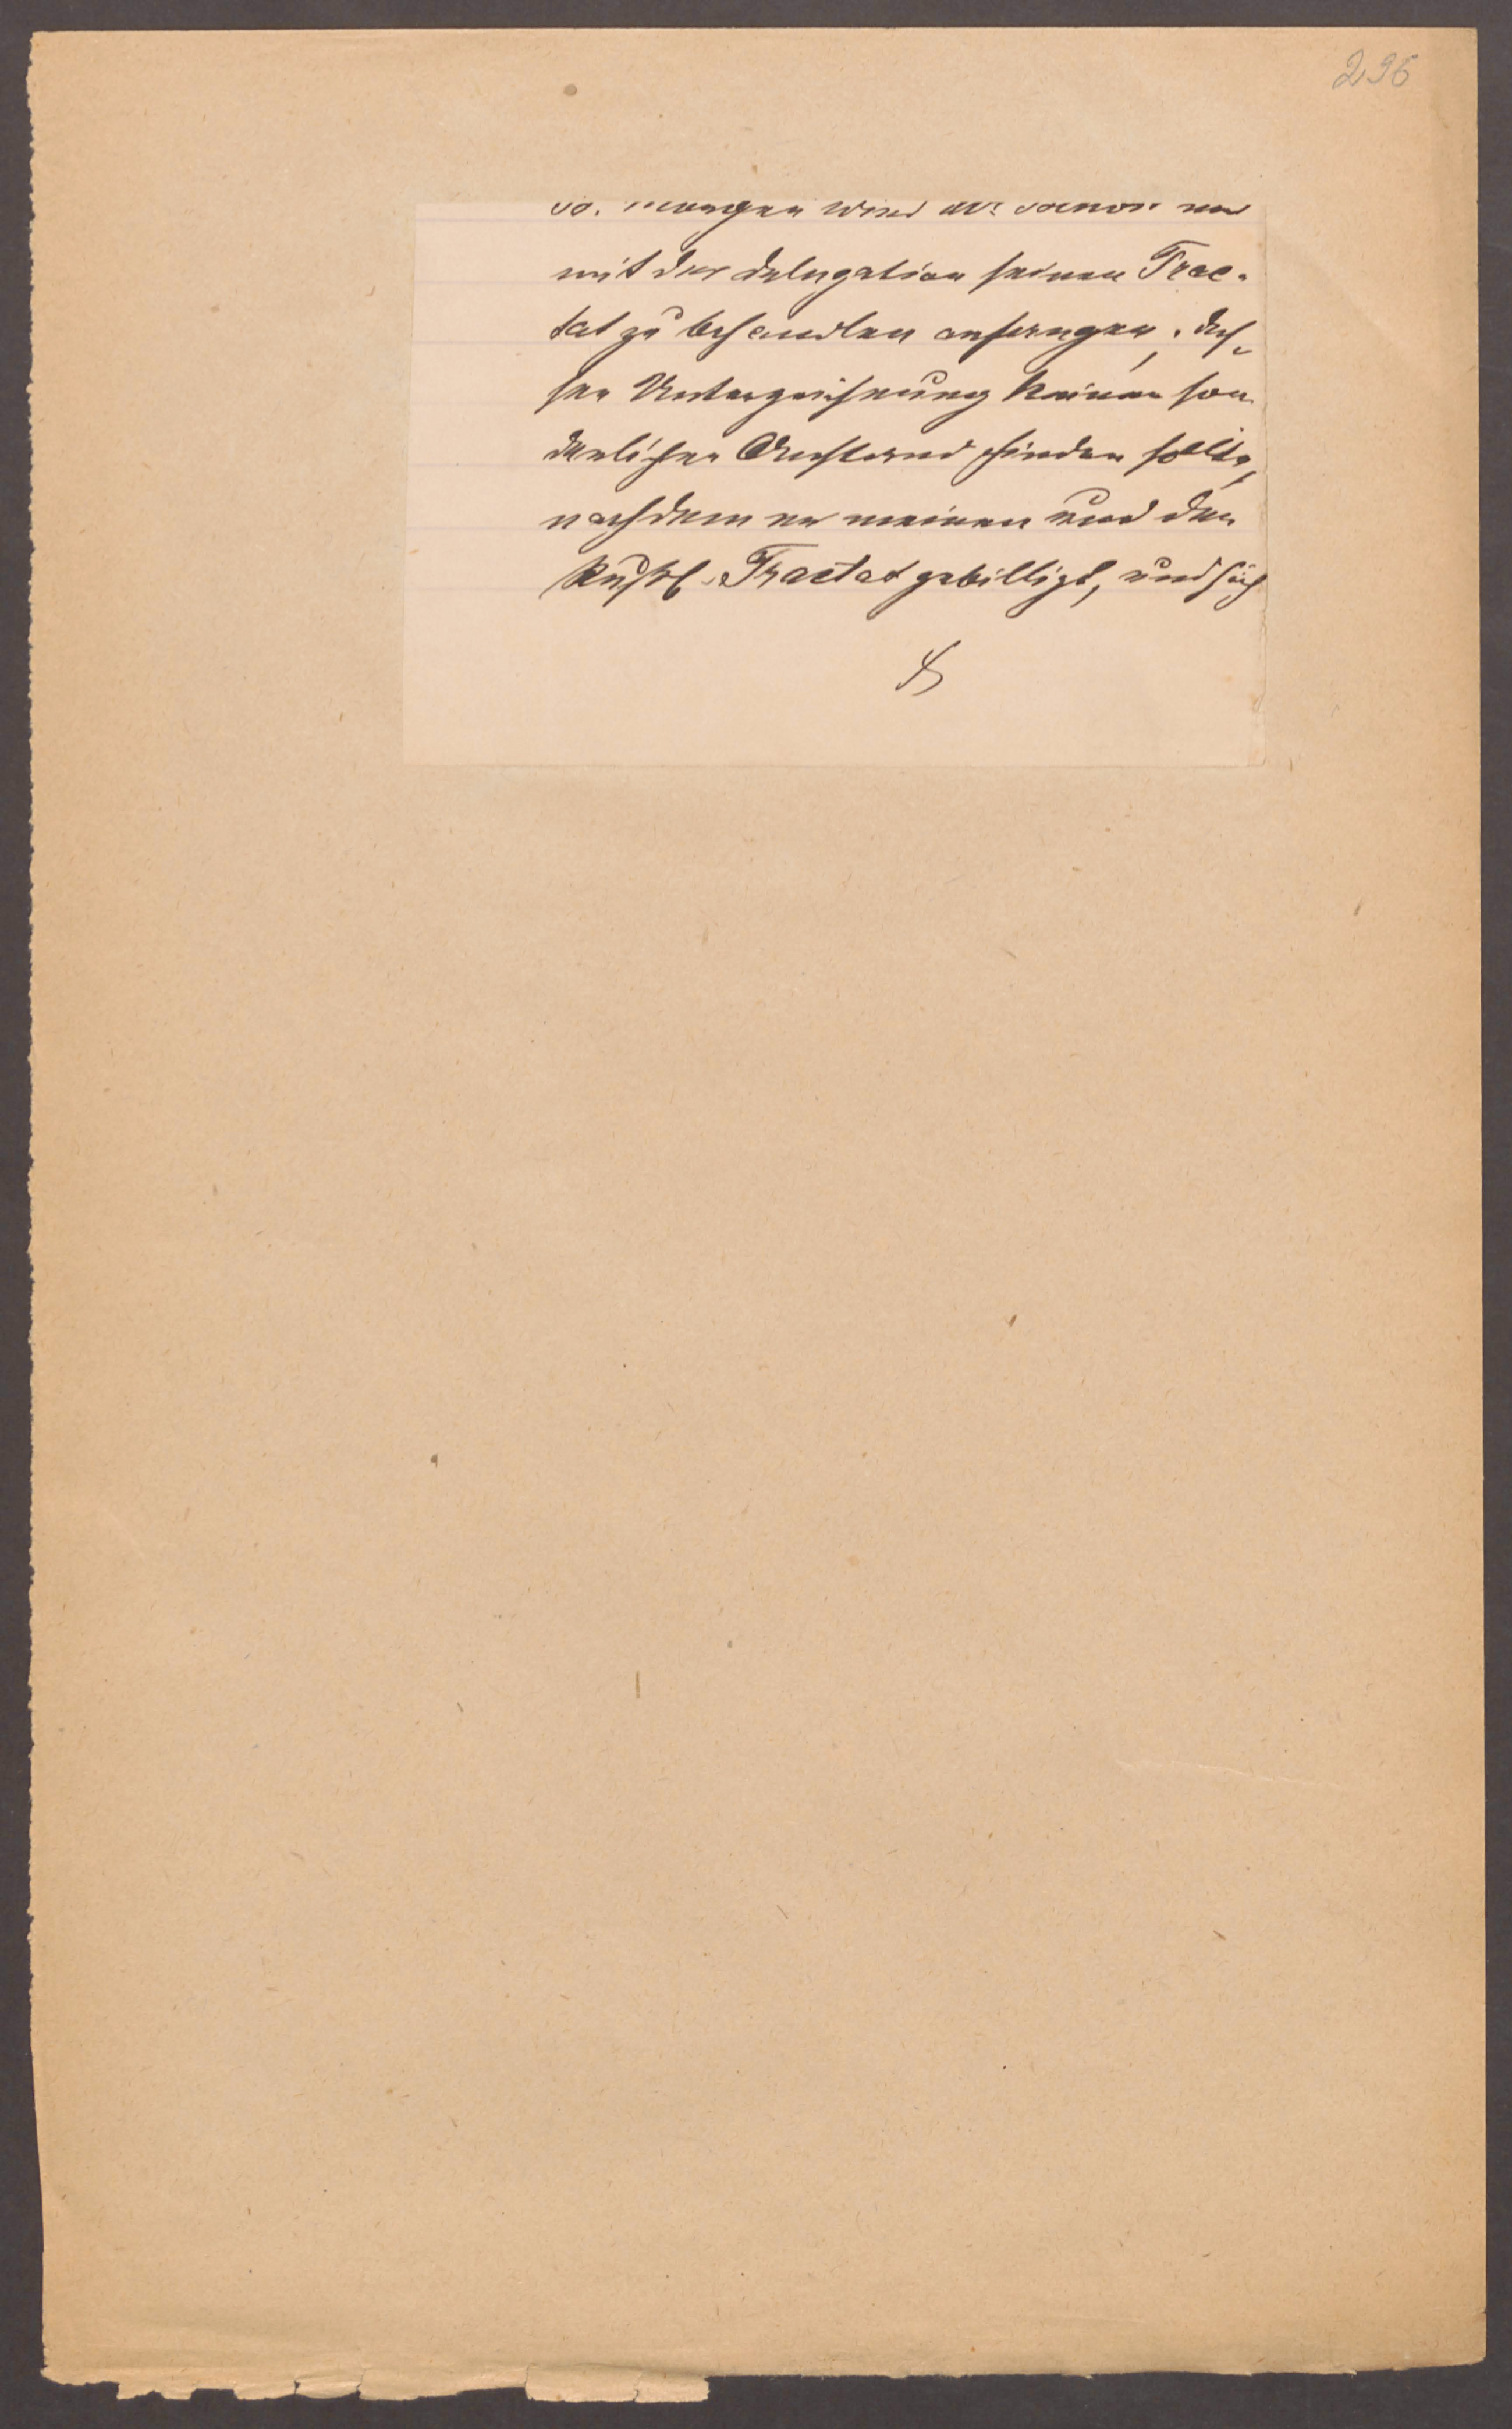 296
morgen wird der
mit der Delegation seinen Trac-
tat zu behandlen anfangen, des-
sen Unterzeichnung keinen son-
derlichen Anstand finden sollte,
nachdem er meinen und den
Rußl. Tractat gebilligt, und sich